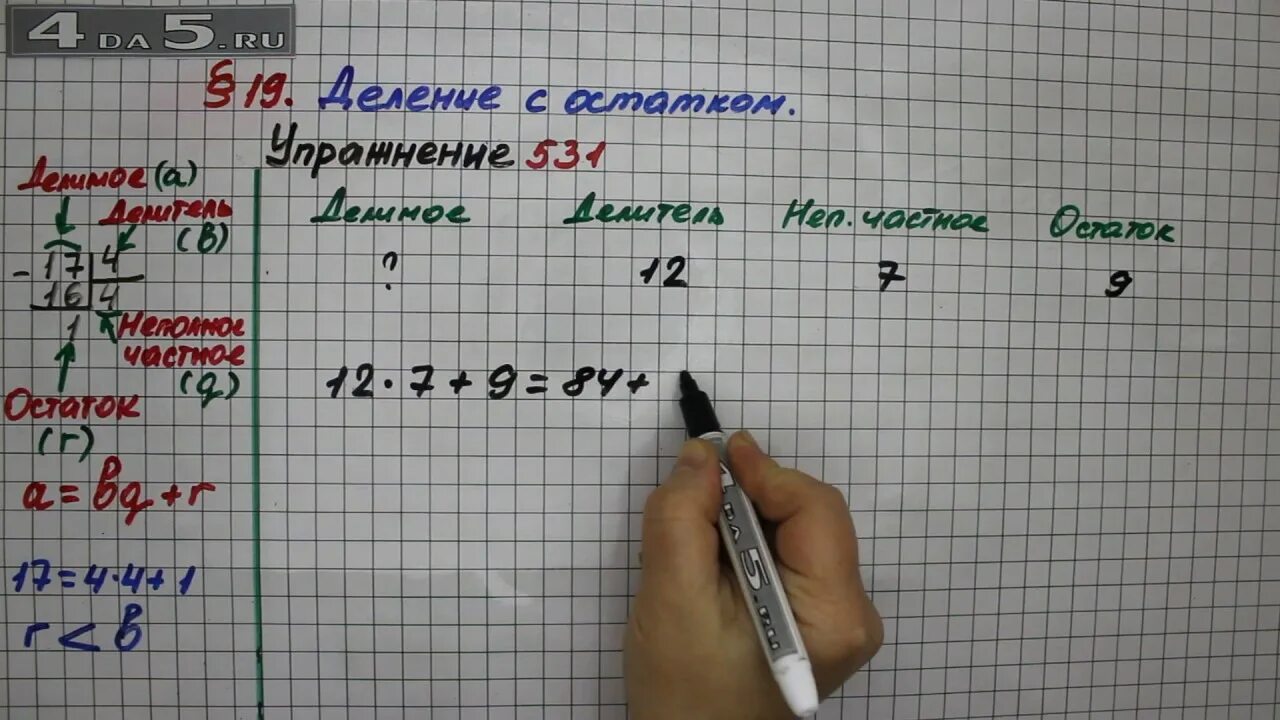 4 DA 5.RU
§ 19. Деление с остатком.
Упражнение 531
Делимое (а)
Делитель
(в)
- 17 4
16 4
1
Неполное
частное
(q)
Остаток
(r)
a = вq + r
17 = 4·4 + 1
r < в
Делимое Делитель Неп. частное Остаток
? 12 7 9
12 · 7 + 9 = 84 +
4 DA 5.RU